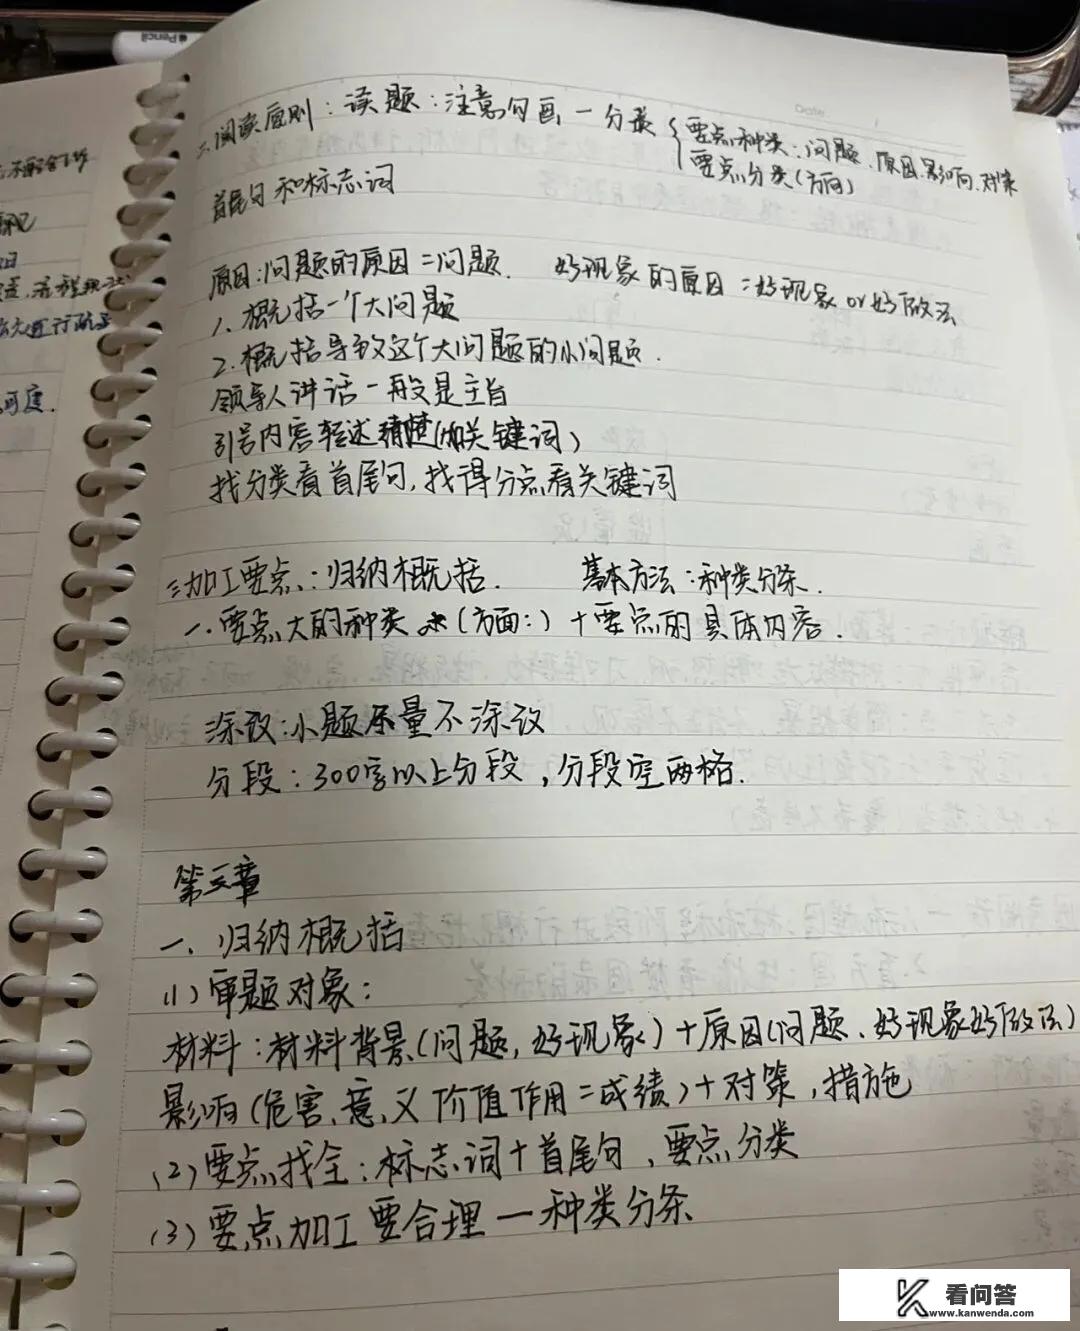 二阅读原则：读题：注意句画一分类{要点种类：问题.原因.影响.对策
要点分类(方向)
首尾句和标志词
原因：问题的原因=问题. 好现象的原因=好现象or好做法
1. 概括一个大问题
2. 概括导致这个大问题的小问题.
领导人讲话一般是主旨
引号内容转述清楚(加关键词)
找分类看首尾句,找得分点看关键词
三加工要点:归纳概括. 基本方法:种类分条.
一.要点大的种类(方面:)+要点的具体内容.
涂改:小题尽量不涂改
分段:300字以上分段,分段空两格.
第三章
一、归纳概括
(1)审题对象:
材料:材料背景(问题,好现象)+原因(问题、好现象好做法)
影响(危害、意、义价值作用=成绩)+对策,措施
(2)要点找全:标志词+首尾句、要点分类
(3)要点加工要合理一种类分条
看问答
www.kanwenda.com